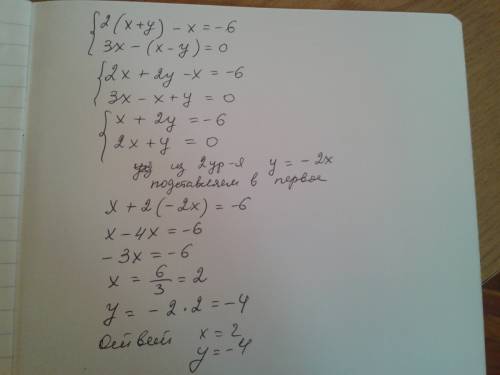 2(x+y) - x = -6
3x - (x-y) = 0
2x + 2y - x = -6
3x - x + y = 0
x + 2y = -6
2x + y = 0
из 2ур-я y = -2x
подставляем в первое
x + 2(-2x) = -6
x - 4x = -6
-3x = -6
x = 6/3 = 2
y = -2·2 = -4
Ответ x = 2
y = -4